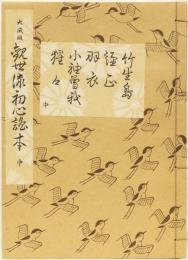 大成版 觀世流初心謠本 中
竹生島
經正
羽衣
小袖曾我
猩々
中